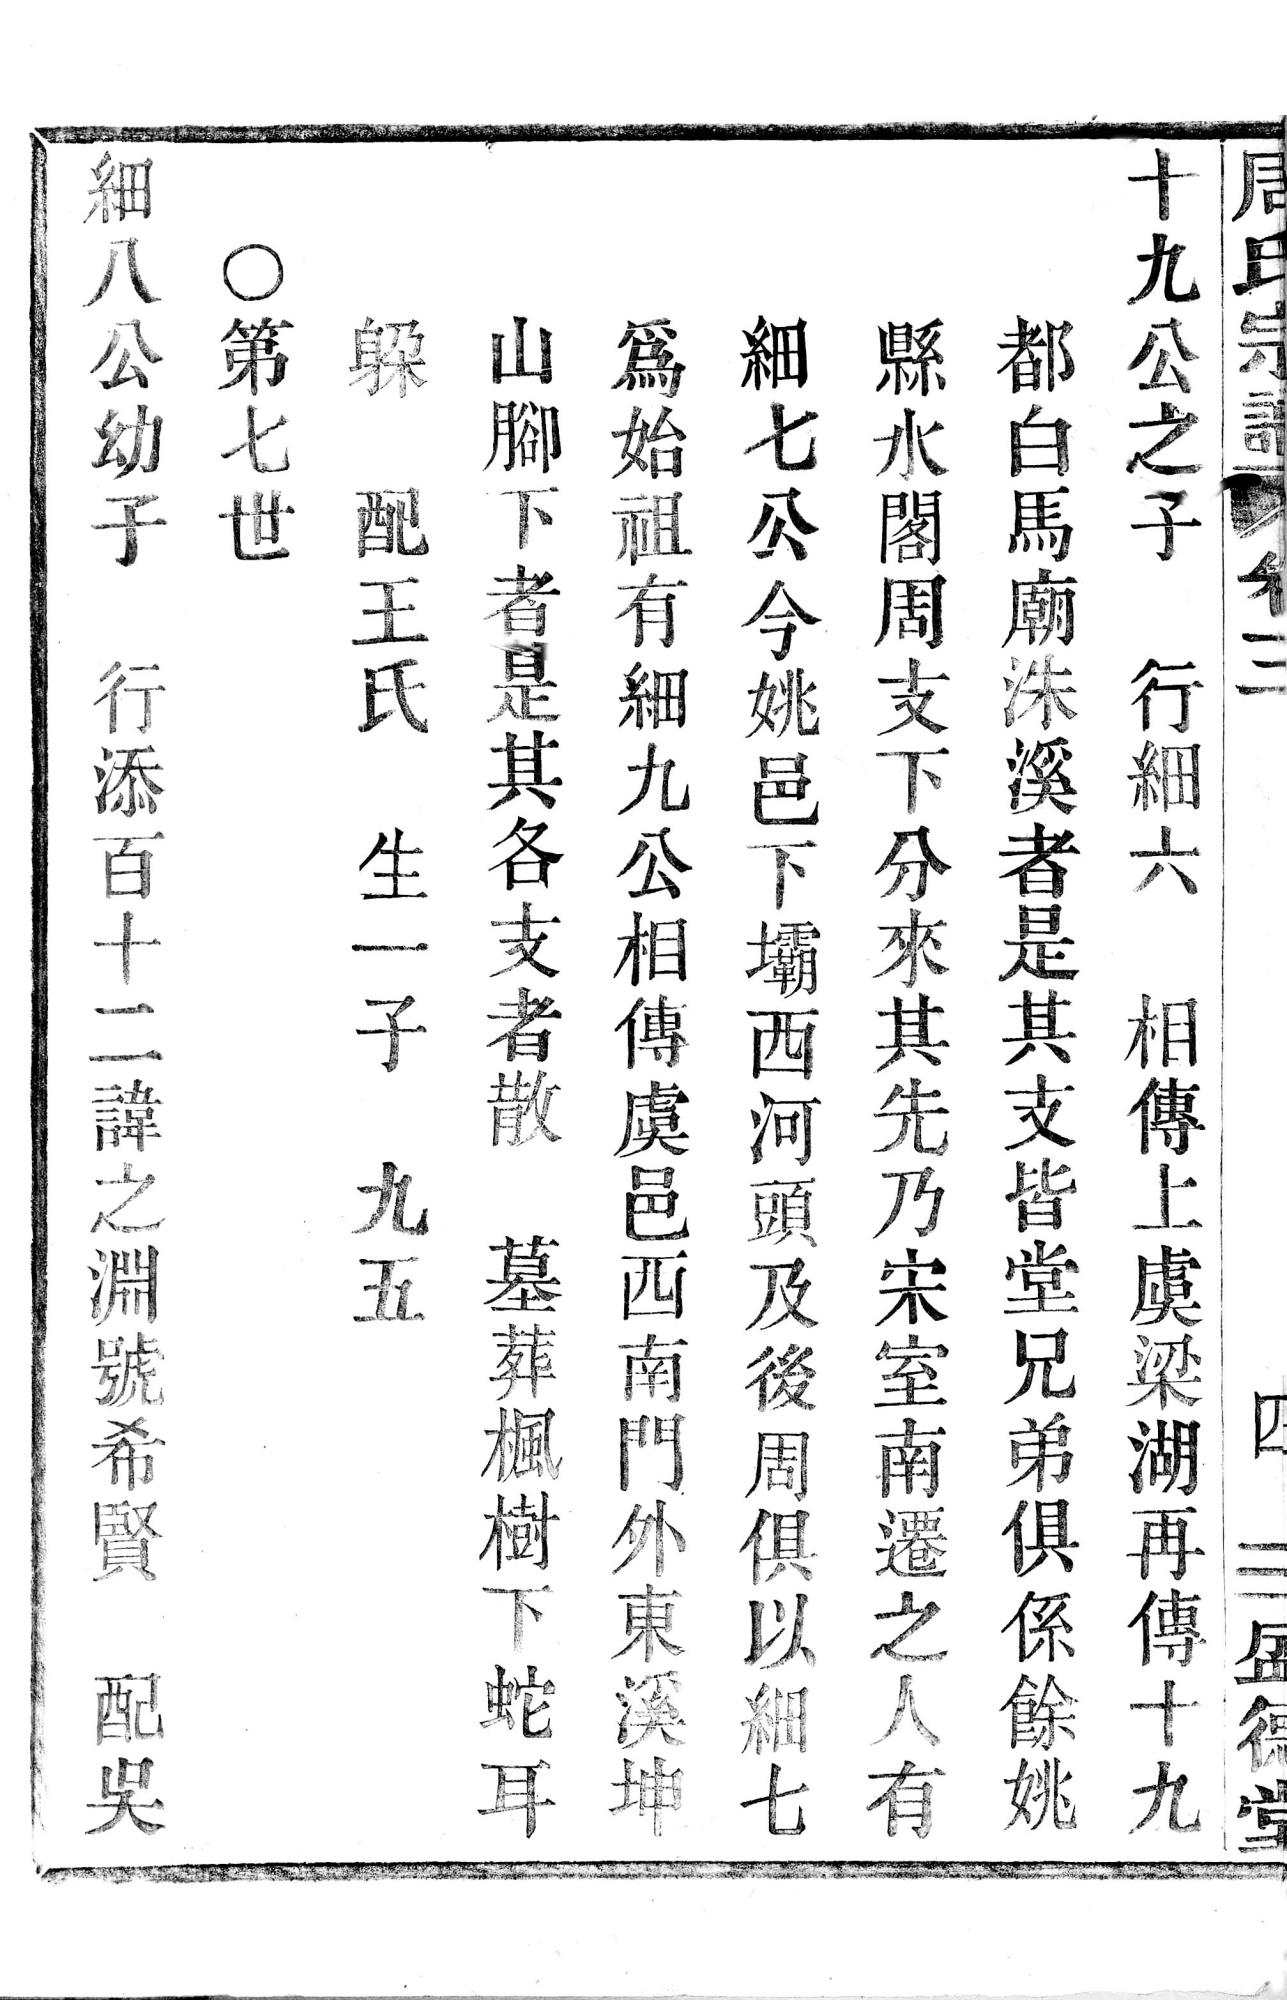 周氏宗譜 卷三 四 三 盛德堂
十九公之子 行細六 相傳上虞梁湖再傳十九
都白馬廟洙溪者是其支皆堂兄弟俱係餘姚
縣水閣周支下分來其先乃宋室南遷之人有
細七公今姚邑下壩西河頭及後周俱以細七
爲始祖有細九公相傳虞邑西南門外東溪坤
山腳下者是其各支者散 墓葬楓樹下蛇耳
躱 配王氏 生一子 九五
〇第七世
細八公幼子 行添百十二諱之淵號希賢 配吳